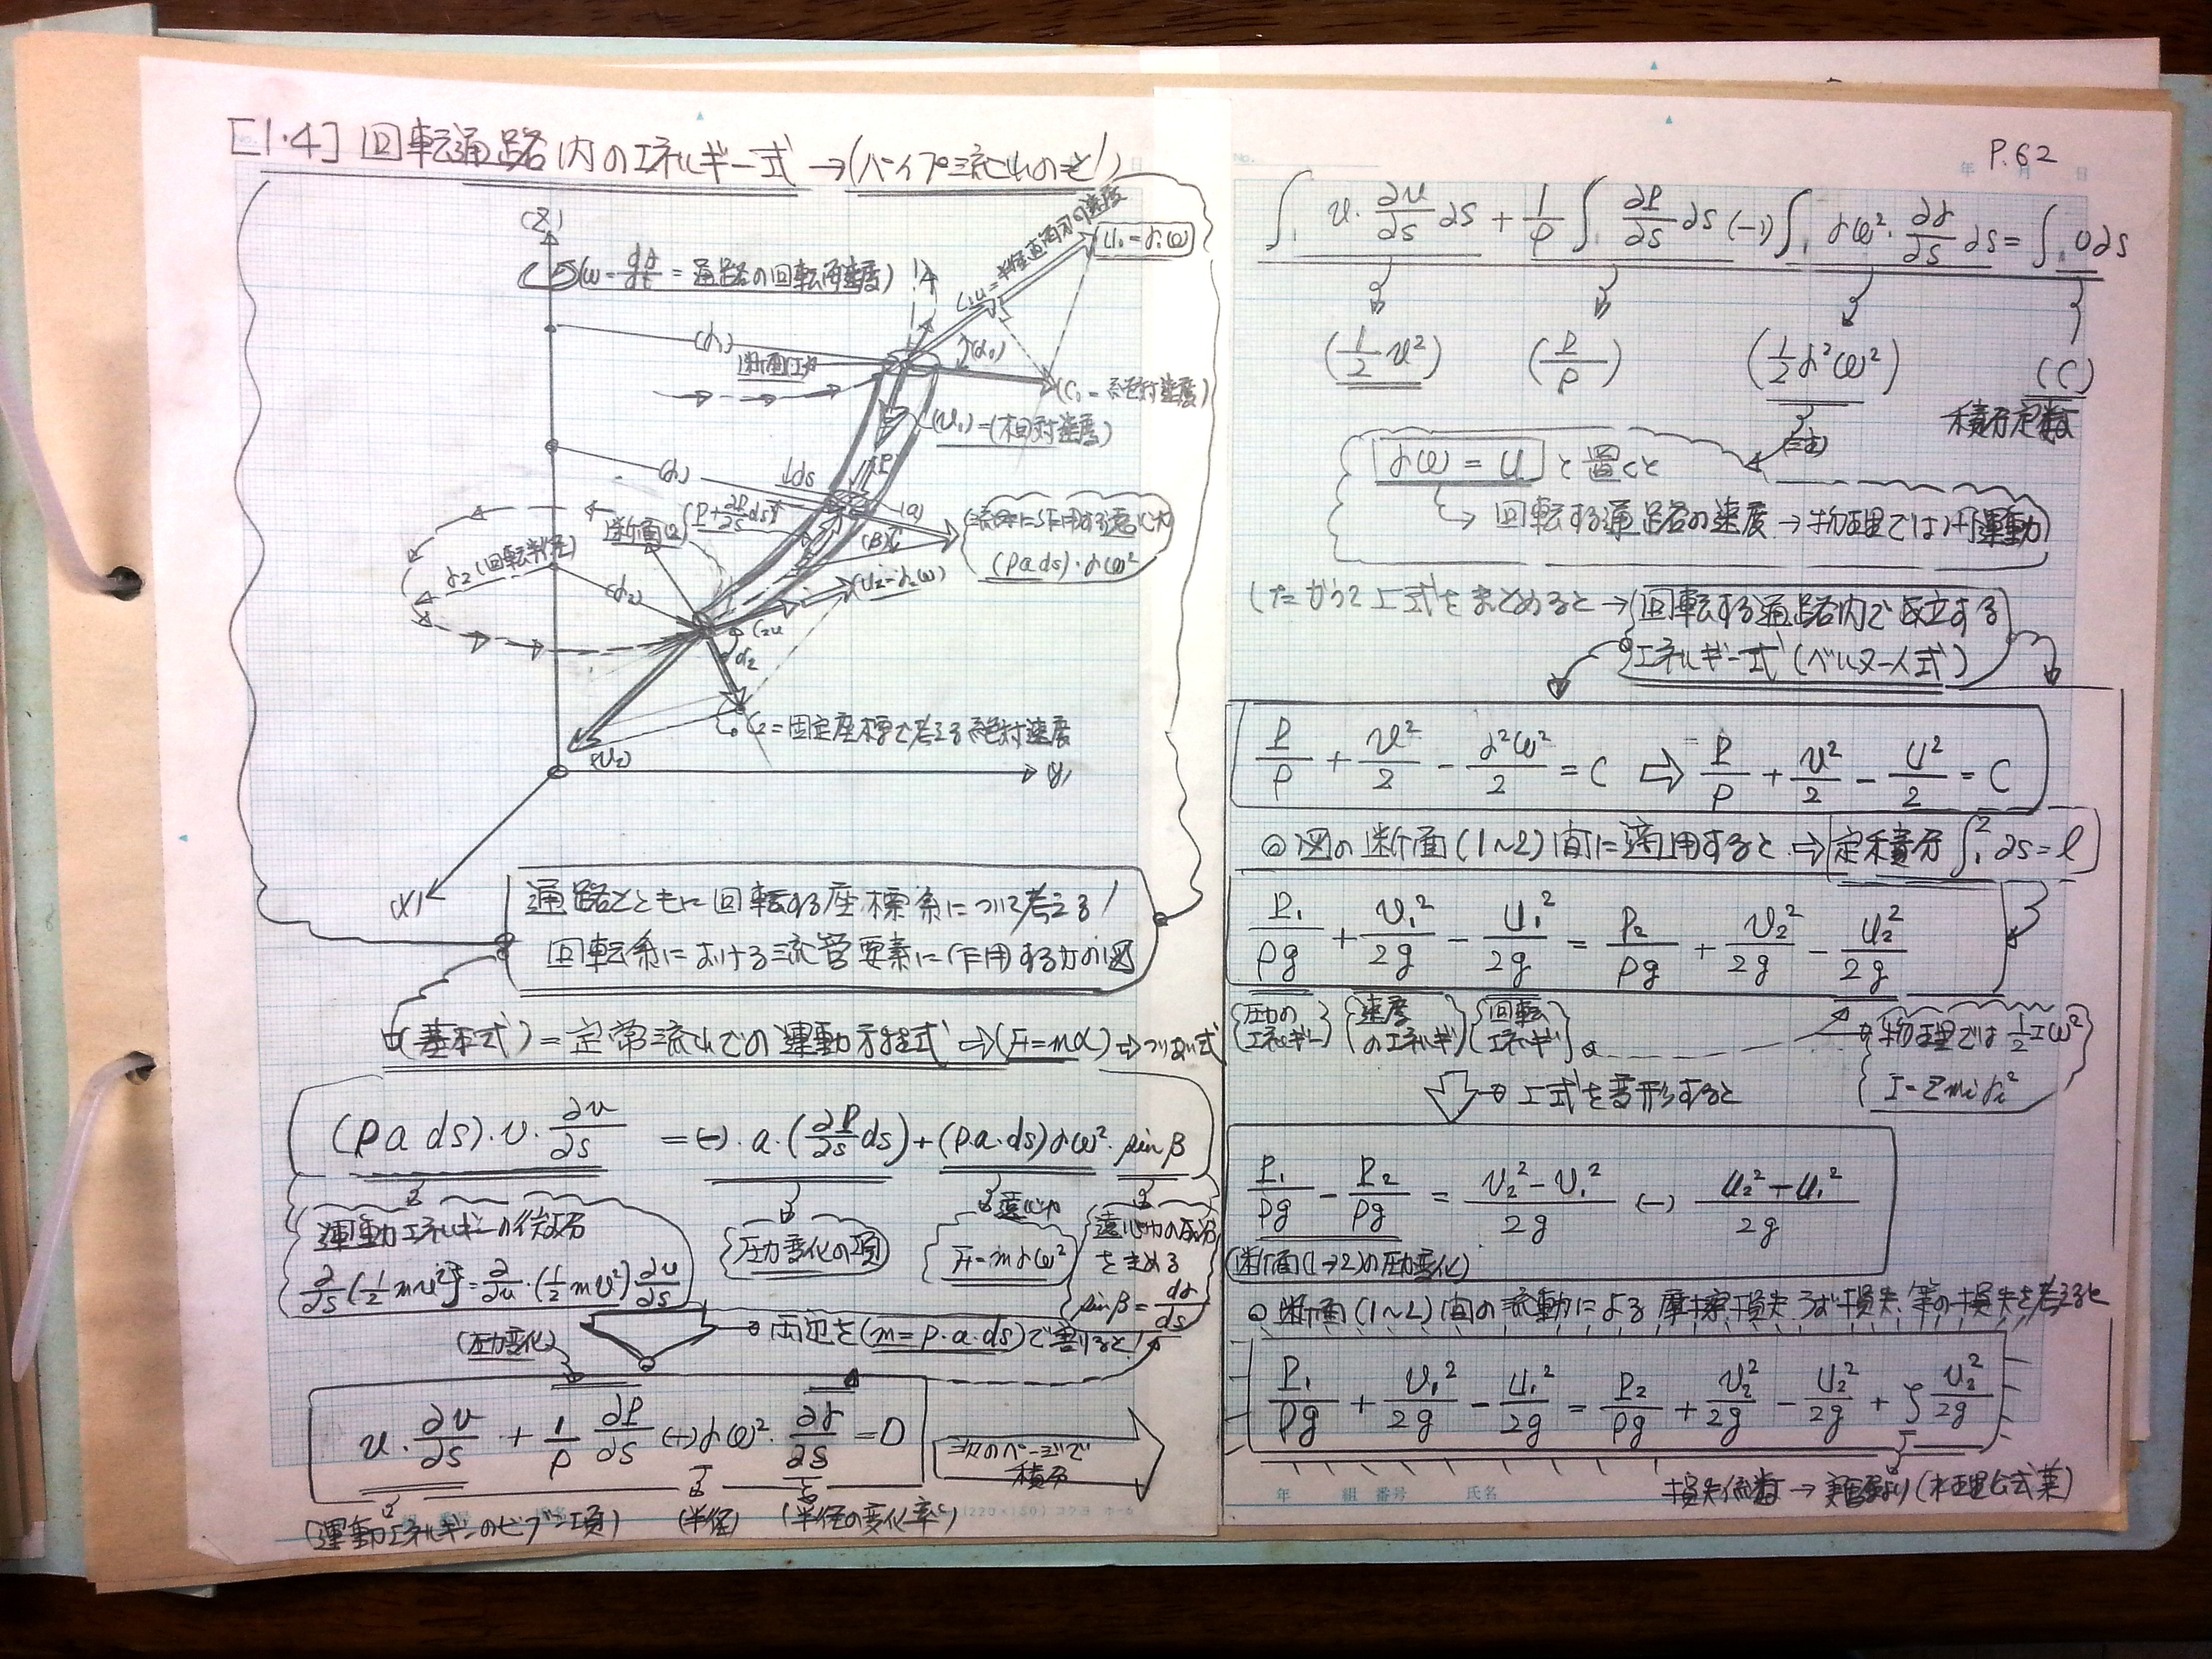 [1.4] 回転通路内のエネルギー式 → (パイプ流れのこと!)
(Z)
(ω = dθ/dt = 通路の回転角速度)
C₁u = 半径直角方向の速度
U₁ = r₁ω
(r₁)
断面(1)
(α₁)
(C₁ = 絶対速度)
(v₁) = (相対速度)
(r)
↓ds
(P)
(a)
断面(2)
(P + ∂P/∂s ds)
(β)
流体に作用する遠心力
(ρ a ds)・rω²
r₂ (回転半径)
(r₂)
(U₂ = r₂ω)
C₂u
α₂
C₂ = 固定座標で考える絶対速度
(v₂)
(y)
(x)
通路とともに回転する座標系について考える!
回転系における流管要素に作用する力の図
(基本式) = 定常流れでの運動方程式 ⇨ (F = mα) ⇨ つりあい式
(ρ a ds)・v・∂v/∂s = (-)・a・(∂P/∂s ds) + (ρ・a・ds) rω²・sin β
運動エネルギーの微分
∂/∂s (1/2 mv²) = ∂/∂v・(1/2 mv²) ∂v/∂s
圧力変化の項
遠心力
F = m rω²
遠心力の圧分
をまとめる
sin β = dr/ds
両辺を (m = ρ・a・ds) で割ると!
(圧力変化)
v・∂v/∂s + 1/ρ ∂P/∂s (-) rω²・∂r/∂s = 0
次のページで
積分
(運動エネルギーのビブン項) (半径) (半径の変化率)
P.62
∫₁ v・∂v/∂s ∂s + 1/ρ ∫₁ ∂P/∂s ∂s (-1) ∫₁ rω²・∂r/∂s ∂s = ∫₁ 0 ∂s
(1/2 v²) (P/ρ) (1/2 r²ω²) (C)
積分定数
(注)
rω = U と置くと
→ 回転する通路の速度 → 物理では円運動
したがって上式をまとめると → 回転する通路内で成立する
エネルギー式 (ベルヌーイ式)
P/ρ + v²/2 - r²ω²/2 = C ⇨ P/ρ + v²/2 - U²/2 = C
◎ 図の断面(1~2)間に適用すると ⇨ 定積分 ∫₁² ∂s = l
P₁/ρg + v₁²/2g - U₁²/2g = P₂/ρg + v₂²/2g - U₂²/2g
{圧力のエネルギー} {速度のエネルギー} {回転エネルギー}
物理では 1/2 Iω²
I = Σ mᵢrᵢ²
上式を変形すると
P₁/ρg - P₂/ρg = (v₂² - v₁²)/2g (-) (U₂² - U₁²)/2g
(断面(1→2)の圧力変化)
◎ 断面(1~2)間の流動による摩擦損失、うず損失、等の損失を考えると
P₁/ρg + v₁²/2g - U₁²/2g = P₂/ρg + v₂²/2g - U₂²/2g + ζ v₂²/2g
損失係数 → 実験より (水理公式集)
年 組 番号 氏名